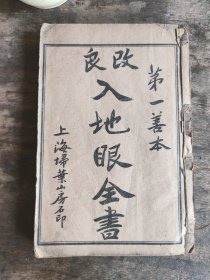 改良
第一善本
入地眼全書
上海埽葉山房石印